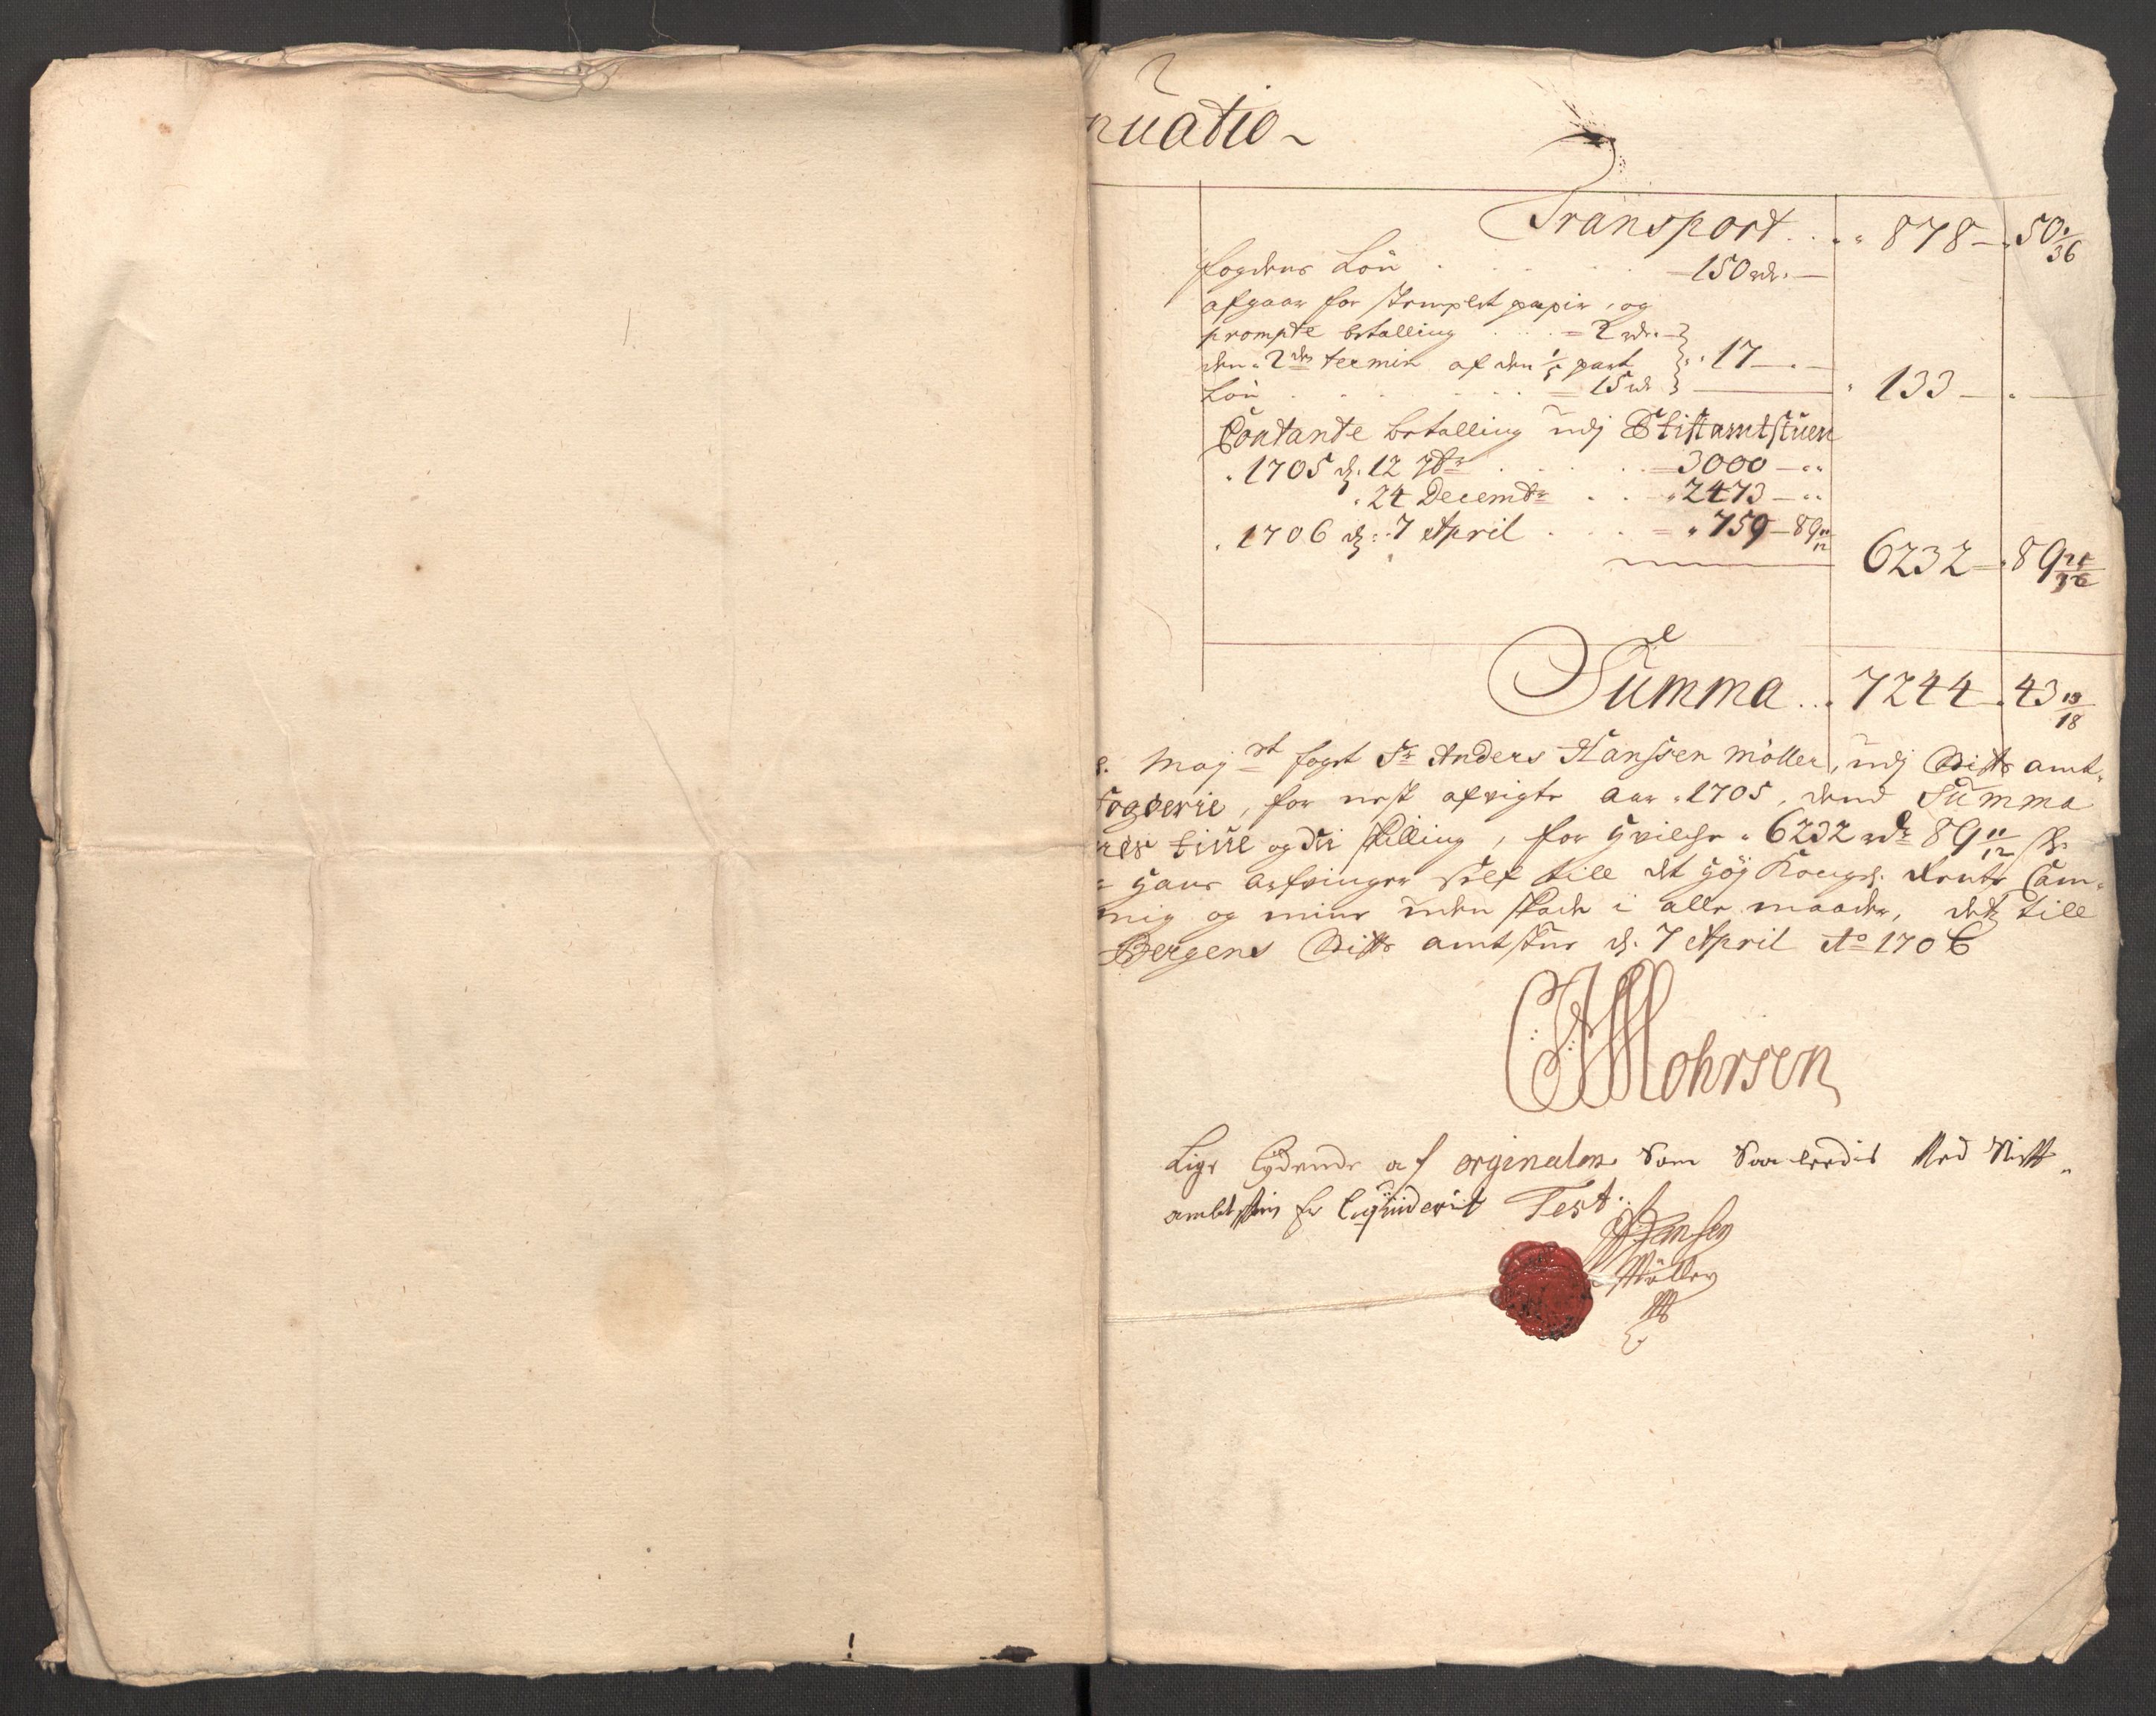 nuatio
Transport . . 878 – 50 1/36
fogdens Lön . . . 150 rdr. –
afgaar for stemplet papir, og
prompte betalling . . . 2 rdr. –
den 2den termin af den 1/5 part } 17 – . –
Lön . . . 15 rdr } 133 – . –
Contante betalling udj Stiftamtstuen
1705 d. 12 7br . . . 3000 – ..
24 Decembr . . . 2473 – ..
1706 d. 7 April . . . 759 – 89 11/12
6232 – 89
Summa . . 7244 . 43 13/18
Mayst fogt Sr Anders Hanssen Möller, udj Stifts amt
fogderie, for nest afvigte Aar 1705, dend Summa
tiue og skilling, for hvilche 6232 rdr 89 11/12 s.
hans arfvinger self till det höj Kongel. Rente Cam-
mig og mine uden skade i alle maader, dets till
Bergens Stifts amtstue d. 7 April Ao 1706
Mohrsen
Lige lydende af orginalen som saaledis ved Stift
ambtstuen er Test:
Hansen
Möller